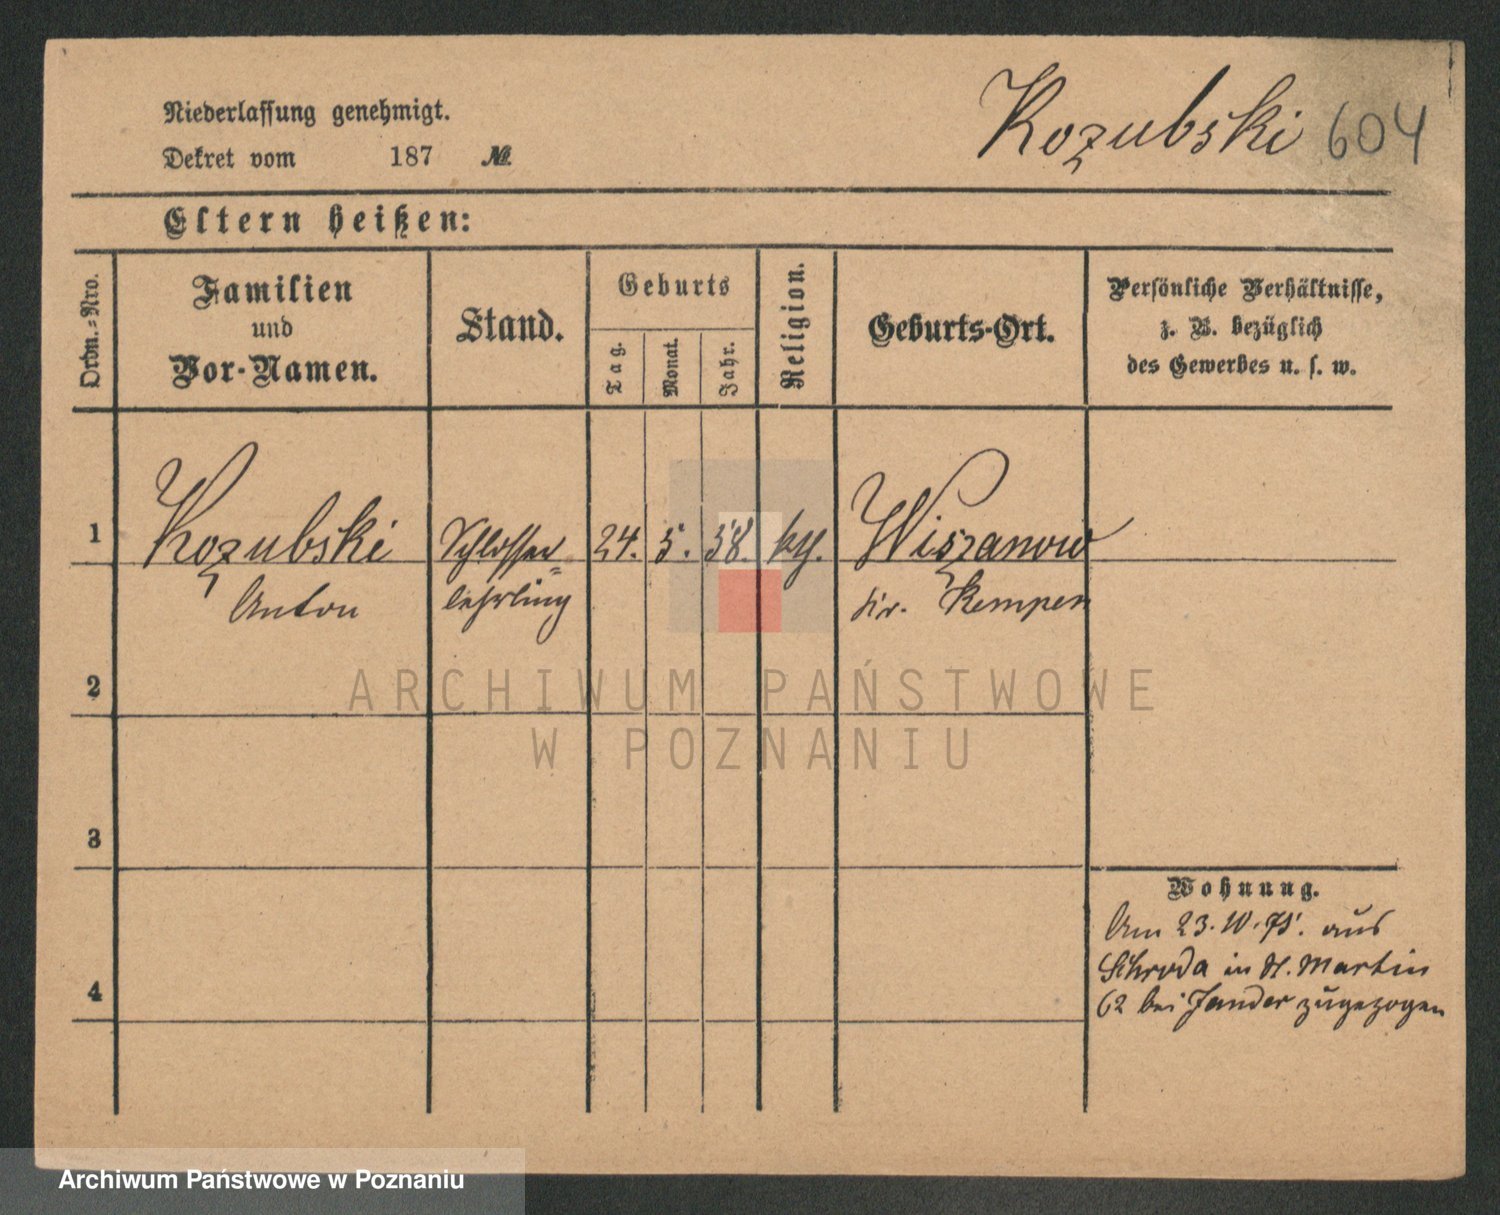 Niederlassung genehmigt.
Dekret vom 187 №
Kozubski 604
Eltern heißen:
Ordn.-Nro.
Familien
und
Vor-Namen.
Stand.
Geburts
Tag.
Monat.
Jahr.
Religion.
Geburts-Ort.
Persönliche Verhältnisse,
z. B. bezüglich
des Gewerbes u. s. w.
1 Kozubski Schlosser= 24. 5. 58. kth. Wiszanow
Anton lehrling Kr. Kempen
2
ARCHIWUM PAŃSTWOWE
W POZNANIU
3
Wohnung.
Am 23.10.75. aus
Schroda in St. Martin
62 bei Jander zugezogen
4
Archiwum Państwowe w Poznaniu